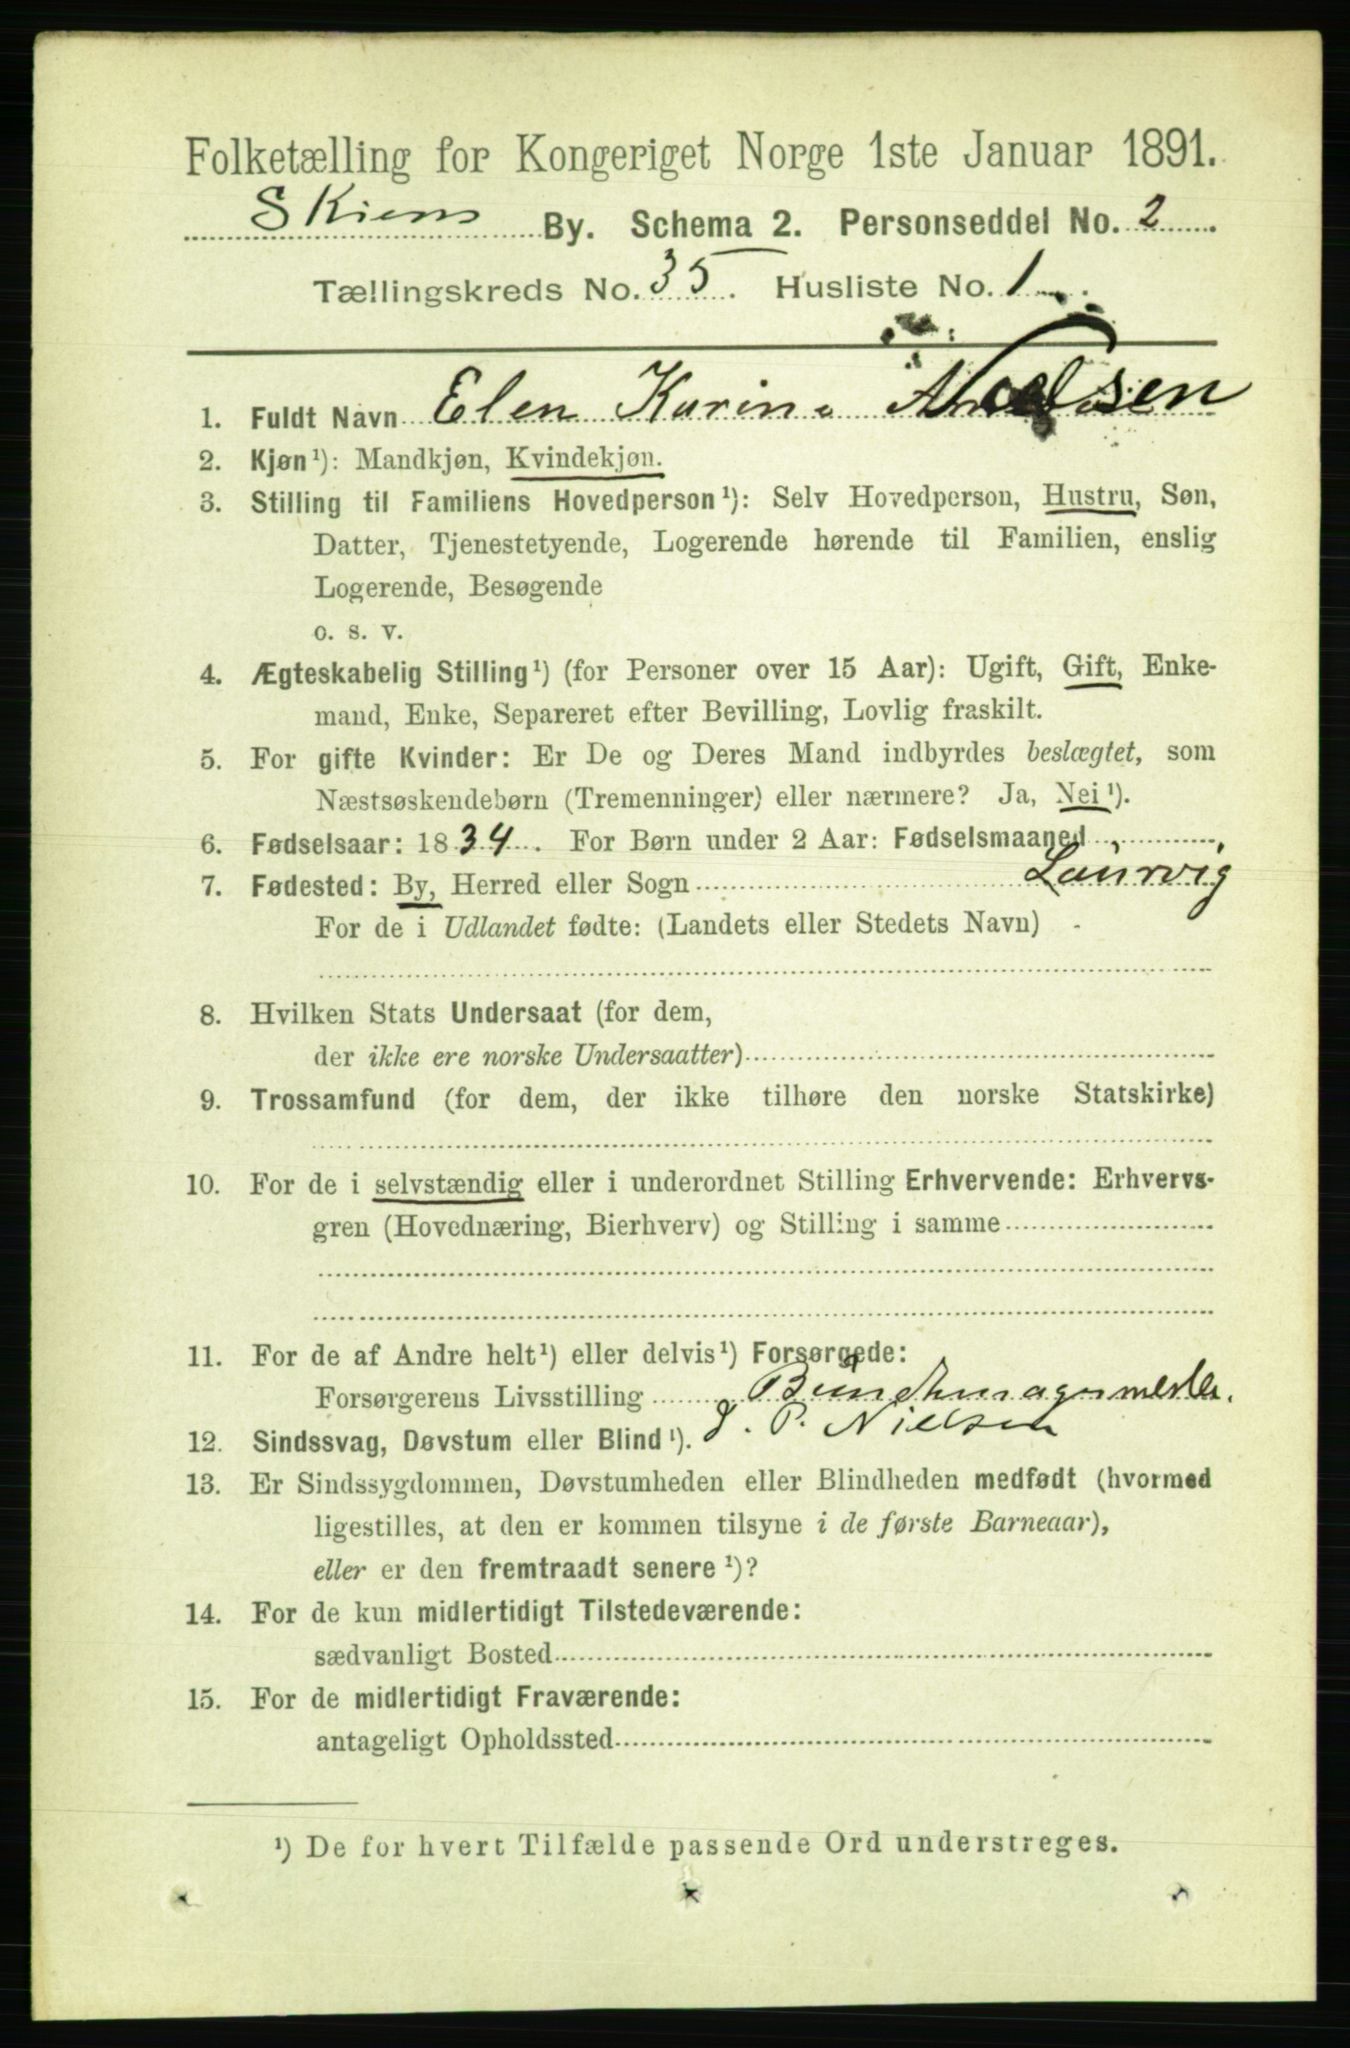 Folketælling for Kongeriget Norge 1ste Januar 1891.
Skiens By. Schema 2. Personseddel No. 2
Tællingskreds No. 35. Husliste No. 1
1. Fuldt Navn Elen Karine Nielsen
2. Kjøn¹): Mandkjøn, Kvindekjøn.
3. Stilling til Familiens Hovedperson¹): Selv Hovedperson, Hustru, Søn,
Datter, Tjenestetyende, Logerende hørende til Familien, enslig
Logerende, Besøgende
o. s. v.
4. Ægteskabelig Stilling¹) (for Personer over 15 Aar): Ugift, Gift, Enke-
mand, Enke, Separeret efter Bevilling, Lovlig fraskilt.
5. For gifte Kvinder: Er De og Deres Mand indbyrdes beslægtet, som
Næstsøskendebørn (Tremenninger) eller nærmere? Ja, Nei¹).
6. Fødselsaar: 1834. For Børn under 2 Aar: Fødselsmaaned
7. Fødested: By, Herred eller Sogn Laurvig
For de i Udlandet fødte: (Landets eller Stedets Navn)
8. Hvilken Stats Undersaat (for dem,
der ikke ere norske Undersaatter)
9. Trossamfund (for dem, der ikke tilhøre den norske Statskirke)
10. For de i selvstændig eller i underordnet Stilling Erhvervende: Erhvervs-
gren (Hovednæring, Bierhverv) og Stilling i samme
11. For de af Andre helt¹) eller delvis¹) Forsørgede:
Forsørgerens Livsstilling Bundtmagermester.
J. P. Nielsen
12. Sindssvag, Døvstum eller Blind¹).
13. Er Sindssygdommen, Døvstumheden eller Blindheden medfødt (hvormed
ligestilles, at den er kommen tilsyne i de første Barneaar),
eller er den fremtraadt senere¹)?
14. For de kun midlertidigt Tilstedeværende:
sædvanligt Bosted
15. For de midlertidigt Fraværende:
antageligt Opholdssted
¹) De for hvert Tilfælde passende Ord understreges.